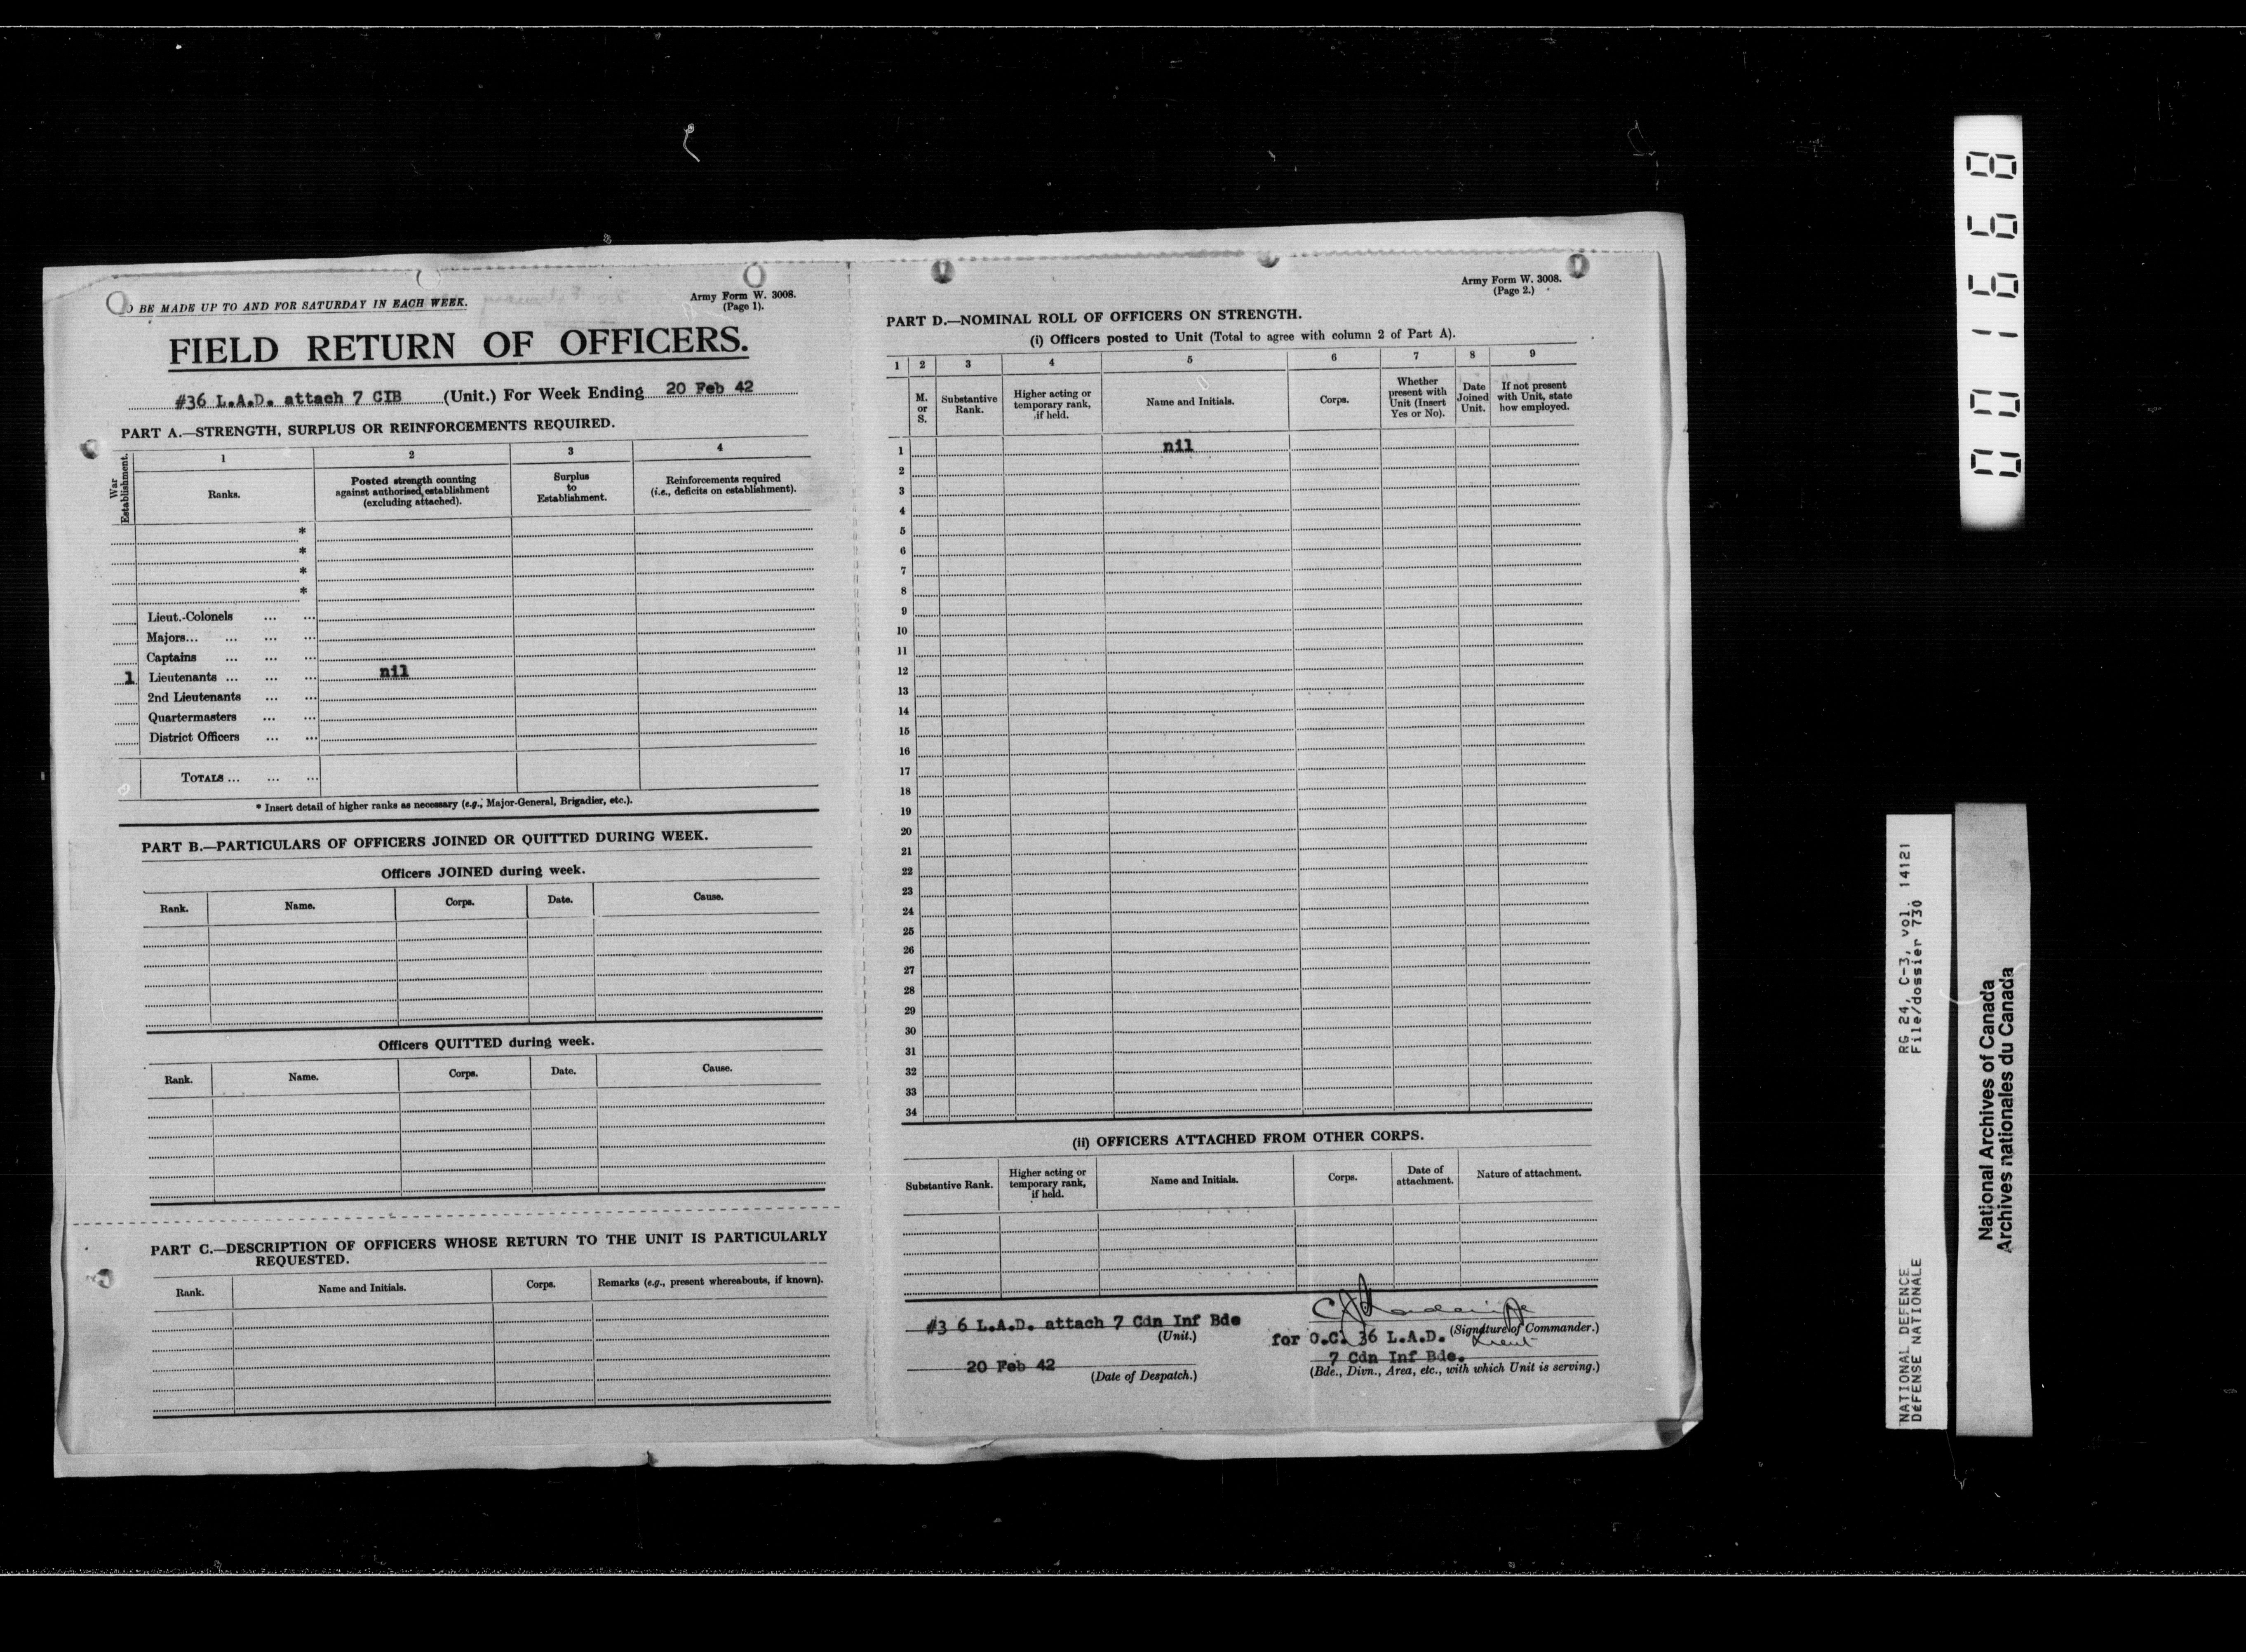 TO BE MADE UP TO AND FOR SATURDAY IN EACH WEEK.
Army Form W. 3008.
(Page 1).
FIELD RETURN OF OFFICERS.
#36 L.A.D. attach 7 CIB (Unit.) For Week Ending 20 Feb 42
PART A.—STRENGTH, SURPLUS OR REINFORCEMENTS REQUIRED.
War Establishment.
1 2 3 4
Ranks.
Posted strength counting against authorised establishment (excluding attached).
Surplus to Establishment.
Reinforcements required (i.e., deficits on establishment).
*
*
*
*
Lieut.-Colonels ... ...
Majors... ... ... ...
Captains ... ... ...
1 Lieutenants ... ... ... nil
2nd Lieutenants ... ...
Quartermasters ... ...
District Officers ... ...
TOTALS ... ... ...
* Insert detail of higher ranks as necessary (e.g., Major-General, Brigadier, etc.).
PART B.—PARTICULARS OF OFFICERS JOINED OR QUITTED DURING WEEK.
Officers JOINED during week.
Rank. Name. Corps. Date. Cause.
Officers QUITTED during week.
Rank. Name. Corps. Date. Cause.
PART C.—DESCRIPTION OF OFFICERS WHOSE RETURN TO THE UNIT IS PARTICULARLY
REQUESTED.
Rank. Name and Initials. Corps. Remarks (e.g., present whereabouts, if known).
Army Form W. 3008.
(Page 2.)
PART D.—NOMINAL ROLL OF OFFICERS ON STRENGTH.
(i) Officers posted to Unit (Total to agree with column 2 of Part A).
1 2 3 4 5 6 7 8 9
M. or S.
Substantive Rank.
Higher acting or temporary rank, if held.
Name and Initials.
Corps.
Whether present with Unit (Insert Yes or No).
Date Joined Unit.
If not present with Unit, state how employed.
1 nil
2
3
4
5
6
7
8
9
10
11
12
13
14
15
16
17
18
19
20
21
22
23
24
25
26
27
28
29
30
31
32
33
34
(ii) OFFICERS ATTACHED FROM OTHER CORPS.
Substantive Rank.
Higher acting or temporary rank, if held.
Name and Initials.
Corps.
Date of attachment.
Nature of attachment.
#3 6 L.A.D. attach 7 Cdn Inf Bde
(Unit.)
20 Feb 42
(Date of Despatch.)
for O.C. 36 L.A.D. (Signature of Commander.)
Lieut
7 Cdn Inf Bde.
(Bde., Divn., Area, etc., with which Unit is serving.)
001668
NATIONAL DEFENCE RG 24, C-3, vol. 14121
DÉFENSE NATIONALE File/dossier 730
National Archives of Canada
Archives nationales du Canada